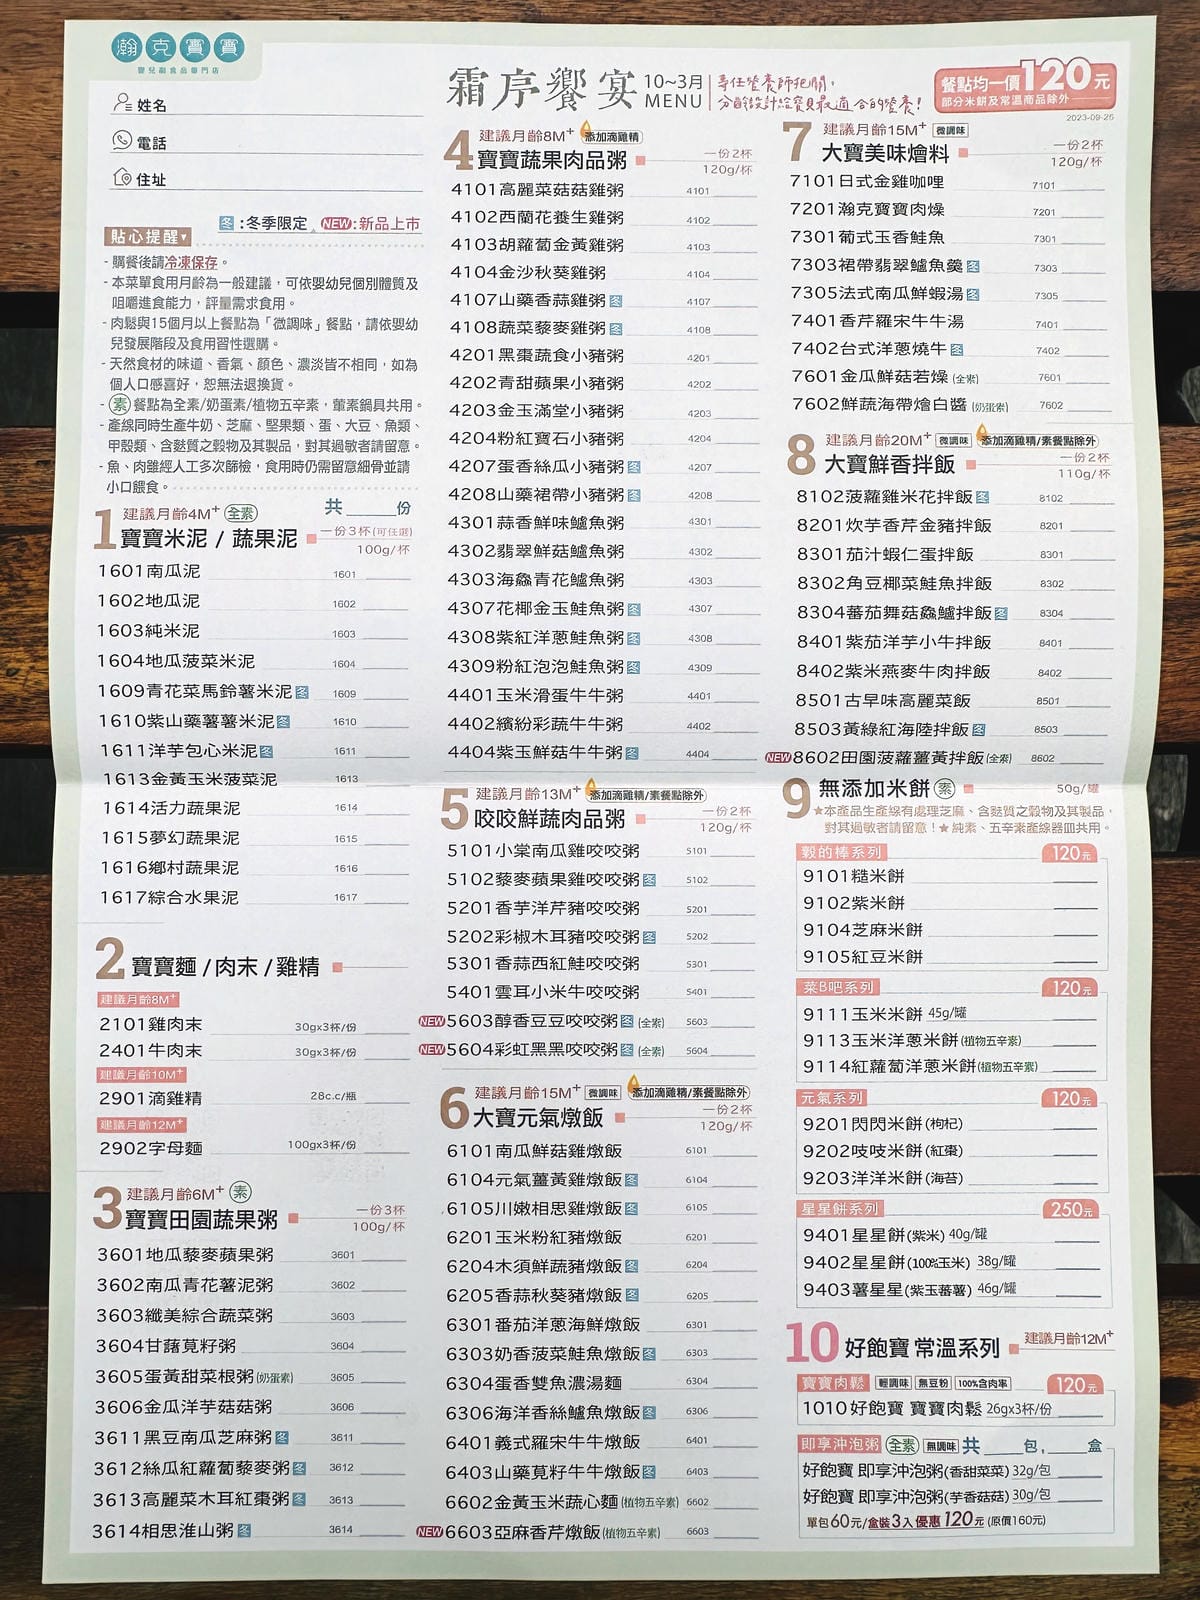 瀚克寶寶
嬰兒副食品專門店
姓名
電話
住址
霜序饗宴 10~3月 MENU
專任營養師把關，
分齡設計給寶貝最適合的營養！
餐點均一價120元
部分米餅及常溫商品除外
2023-09-25
冬:冬季限定、NEW:新品上市
貼心提醒▾
- 購餐後請冷凍保存。
- 本菜單食用月齡為一般建議，可依嬰幼兒個別體質及
咀嚼進食能力，評量需求食用。
- 肉鬆與15個月以上餐點為「微調味」餐點，請依嬰幼
兒發展階段及食用習性選購。
- 天然食材的味道、香氣、顏色、濃淡皆不相同，如為
個人口感喜好，恕無法退換貨。
- 素 餐點為全素/奶蛋素/植物五辛素，葷素鍋具共用。
- 產線同時生產牛奶、芝麻、堅果類、蛋、大豆、魚類、
甲殼類、含麩質之穀物及其製品，對其過敏者請留意。
- 魚、肉雖經人工多次篩檢，食用時仍需留意細骨並請
小口餵食。
共 份
1 建議月齡4M+ 全素
寶寶米泥 / 蔬果泥 一份3杯(可任選)
100g/杯
1601南瓜泥 1601
1602地瓜泥 1602
1603純米泥 1603
1604地瓜菠菜米泥 1604
1609青花菜馬鈴薯米泥 冬 1609
1610紫山藥薯薯米泥 冬 1610
1611洋芋包心米泥 冬 1611
1613金黃玉米菠菜泥 1613
1614活力蔬果泥 1614
1615夢幻蔬果泥 1615
1616鄉村蔬果泥 1616
1617綜合水果泥 1617
2 寶寶麵 / 肉末 / 雞精
建議月齡8M+
2101雞肉末 30gx3杯/份
2401牛肉末 30gx3杯/份
建議月齡10M+
2901滴雞精 28c.c/瓶
建議月齡12M+
2902字母麵 100gx3杯/份
3 建議月齡6M+ 素
寶寶田園蔬果粥 一份3杯
100g/杯
3601地瓜藜麥蘋果粥 3601
3602南瓜青花薯泥粥 3602
3603纖美綜合蔬菜粥 3603
3604甘藷莧籽粥 3604
3605蛋黃甜菜根粥(奶蛋素) 3605
3606金瓜洋芋菇菇粥 3606
3611黑豆南瓜芝麻粥 冬 3611
3612絲瓜紅蘿蔔藜麥粥 冬 3612
3613高麗菜木耳紅棗粥 冬 3613
3614相思淮山粥 冬 3614
4 建議月齡8M+ 添加滴雞精
寶寶蔬果肉品粥 一份2杯
120g/杯
4101高麗菜菇菇雞粥 4101
4102西蘭花養生雞粥 4102
4103胡蘿蔔金黃雞粥 4103
4104金沙秋葵雞粥 4104
4107山藥香蒜雞粥 冬 4107
4108蔬菜藜麥雞粥 冬 4108
4201黑棗蔬食小豬粥 4201
4202青甜蘋果小豬粥 4202
4203金玉滿堂小豬粥 4203
4204粉紅寶石小豬粥 4204
4207蛋香絲瓜小豬粥 冬 4207
4208山藥裙帶小豬粥 冬 4208
4301蒜香鮮味鱸魚粥 4301
4302翡翠鮮菇鱸魚粥 4302
4303海鱻青花鱸魚粥 4303
4307花椰金玉鮭魚粥 冬 4307
4308紫紅洋蔥鮭魚粥 冬 4308
4309粉紅泡泡鮭魚粥 冬 4309
4401玉米滑蛋牛牛粥 4401
4402繽紛彩蔬牛牛粥 4402
4404紫玉鮮菇牛牛粥 冬 4404
5 建議月齡13M+ 添加滴雞精/素餐點除外
咬咬鮮蔬肉品粥 一份2杯
120g/杯
5101小棠南瓜雞咬咬粥 5101
5102藜麥蘋果雞咬咬粥 冬 5102
5201香芋洋芹豬咬咬粥 5201
5202彩椒木耳豬咬咬粥 冬 5202
5301香蒜西紅鮭咬咬粥 5301
5401雲耳小米牛咬咬粥 5401
NEW 5603醇香豆豆咬咬粥 冬 (全素) 5603
NEW 5604彩虹黑黑咬咬粥 冬 (全素) 5604
6 建議月齡15M+ 微調味 添加滴雞精/素餐點除外
大寶元氣燉飯 一份2杯
120g/杯
6101南瓜鮮菇雞燉飯 6101
6104元氣薑黃雞燉飯 冬 6104
6105川嫩相思雞燉飯 冬 6105
6201玉米粉紅豬燉飯 6201
6204木須鮮蔬豬燉飯 冬 6204
6205香蒜秋葵豬燉飯 冬 6205
6301番茄洋蔥海鮮燉飯 6301
6303奶香菠菜鮭魚燉飯 冬 6303
6304蛋香雙魚濃湯麵 6304
6306海洋香絲鱸魚燉飯 冬 6306
6401義式羅宋牛牛燉飯 6401
6403山藥莧籽牛牛燉飯 冬 6403
6602金黃玉米蔬心麵(植物五辛素) 6602
NEW 6603亞麻香芹燉飯(植物五辛素) 6603
7 建議月齡15M+ 微調味
大寶美味燴料 一份2杯
120g/杯
7101日式金雞咖哩 7101
7201瀚克寶寶肉燥 7201
7301葡式玉香鮭魚 7301
7303裙帶翡翠鱸魚羹 冬 7303
7305法式南瓜鮮蝦湯 冬 7305
7401香芹羅宋牛牛湯 7401
7402台式洋蔥燒牛 冬 7402
7601金瓜鮮菇若燥 (全素) 7601
7602鮮蔬海帶燴白醬 (奶蛋素) 7602
8 建議月齡20M+ 微調味 添加滴雞精/素餐點除外
大寶鮮香拌飯 一份2杯
110g/杯
8102菠蘿雞米花拌飯 冬 8102
8201炊芋香芹金豬拌飯 8201
8301茄汁蝦仁蛋拌飯 8301
8302角豆椰菜鮭魚拌飯 8302
8304蕃茄舞菇鱻鱸拌飯 冬 8304
8401紫茄洋芋小牛拌飯 8401
8402紫米燕麥牛肉拌飯 8402
8501古早味高麗菜飯 8501
8503黃綠紅海陸拌飯 冬 8503
NEW 8602田園菠蘿薑黃拌飯(全素) 8602
9 無添加米餅 素 50g/罐
★本產品生產線有處理芝麻、含麩質之穀物及其製品，
對其過敏者請留意！★純素、五辛素產線器皿共用。
穀的棒系列 120元
9101糙米餅
9102紫米餅
9104芝麻米餅
9105紅豆米餅
菜B吧系列 120元
9111玉米米餅 45g/罐
9113玉米洋蔥米餅(植物五辛素)
9114紅蘿蔔洋蔥米餅(植物五辛素)
元氣系列 120元
9201閃閃米餅(枸杞)
9202吱吱米餅(紅棗)
9203洋洋米餅(海苔)
星星餅系列 250元
9401星星餅(紫米) 40g/罐
9402星星餅(100%玉米) 38g/罐
9403薯星星(紫玉蕃薯) 46g/罐
10 好飽寶 常溫系列 建議月齡12M+
寶寶肉鬆 輕調味 無豆粉 100%含肉率 120元
1010好飽寶 寶寶肉鬆 26gx3杯/份
即享沖泡粥 全素 無調味 共 包, 盒
好飽寶 即享沖泡粥(香甜菜菜) 32g/包
好飽寶 即享沖泡粥(芋香菇菇) 30g/包
單包60元/盒裝3入優惠120元 (原價160元)